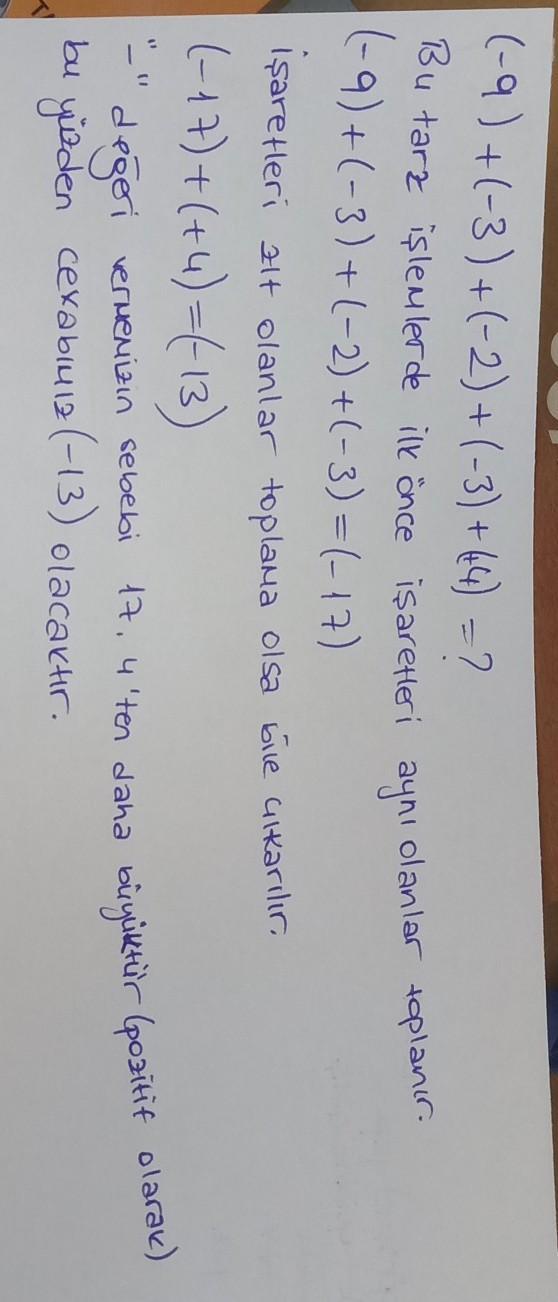 (-9) + (-3) + (-2) + (-3) + (+4) = ?
Bu tarz işlemlerde ilk önce işaretleri aynı olanlar toplanır.
(-9) + (-3) + (-2) + (-3) = (-17)
işaretleri zıt olanlar toplama olsa bile çıkarılır.
(-17) + (+4) = (-13)
"-" değeri vermemizin sebebi 17, 4'ten daha büyüktür (pozitif olarak)
bu yüzden cevabımız (-13) olacaktır.